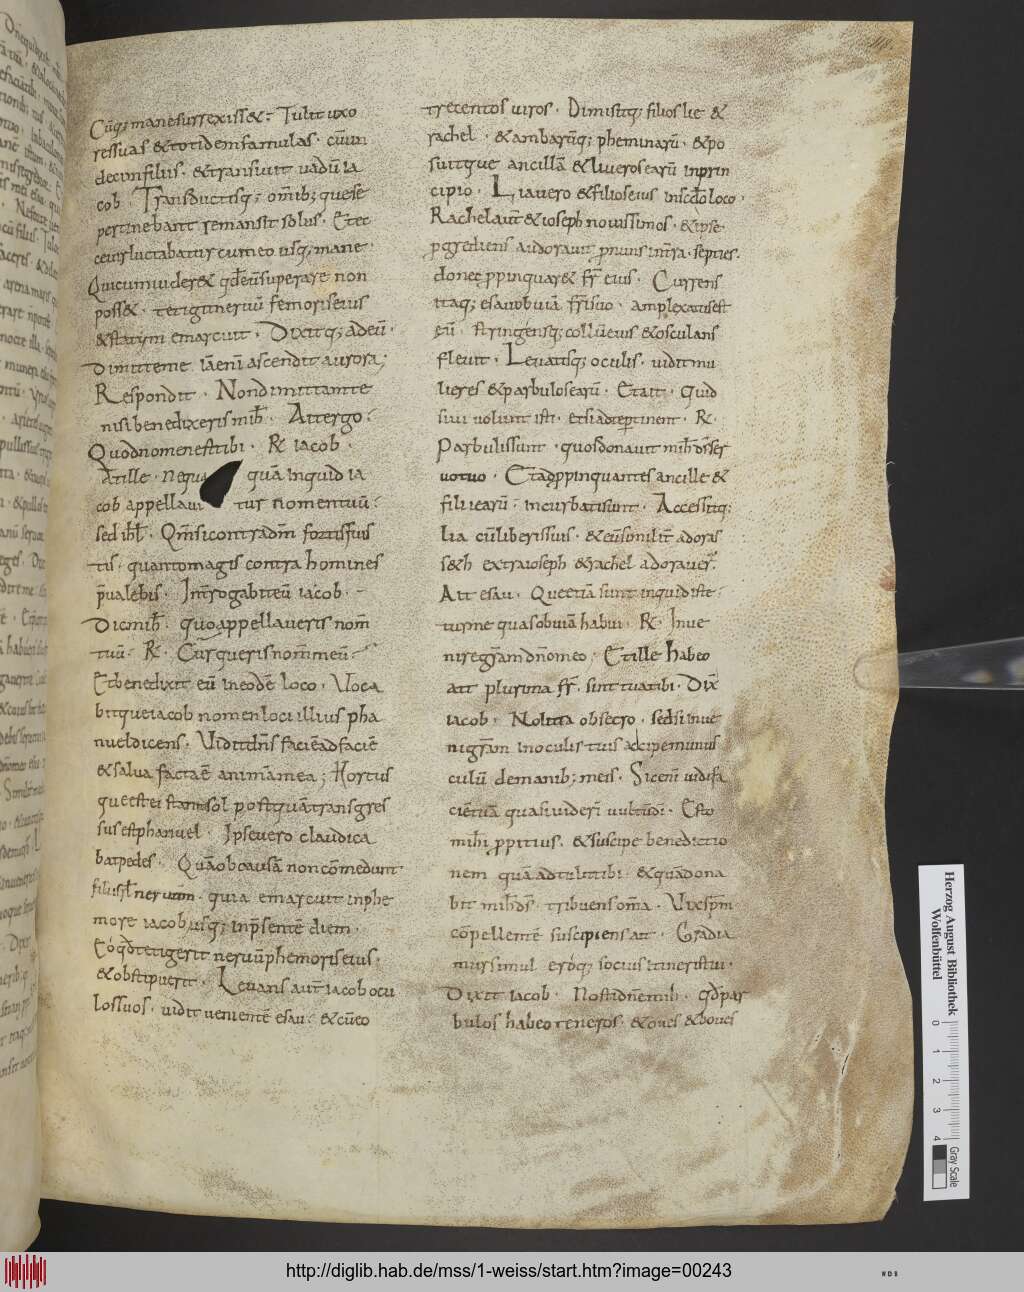 Cūq; mane surrexiss&. Tulit uxo
res suas & totidem famulas. cum
decim filiis. & transiuit uadū ia
cob. Transductisq; omīb; que se
pertinebant remansit solus. Et ec
ce uir luctabatur cum eo usq; mane.
Qui cum uider& qd̄ eū superare non
poss&. tetigit neruū femoris eius
& statim emarcuit. Dixitq; ad eū.
Dimitte me iāenī ascendit aurora;
Respondit. Non dimittam te
nisi benedixeris mih̄. Ait ergo.
Quod nomen est tibi. R̄ iacob.
At ille. nequa quā inquid ia
cob appellabi tur nomen tuū.
sed isr̄l. Qm̄ si contra dm̄ fortis fuis
tis. quanto magis contra homines
p̄ualebis. Int̄rogabit eū iacob.
Dic mih̄. quo appellaueris nom̄
tuū. R̄. Cur queris nom̄ meū.
Et benedixit eū in eodē loco. Uoca
bitque iacob nomen loci illius pha
nuel dicens. Uidi dn̄s faciē ad faciē
& salua facta ē anima mea; Hortus
que est ei statim sol postquā transgres
sus est phanuel. Ipse uero claudica
bat pedes. Quā ob causā non comedunt
filii isr̄l neruum. quia emarcuit in phe
more iacob usq; in p̄sentē diem.
Eo qd̄ tetigerit neruū phemoris eius.
& obstipuerit. Leuans aut̄ iacob ocu
los suos. uidit uenientē esau. & cū eo
trecentos uiros. Dimisitq; filios lie &
rachel. & ambarūq; pheminarū. & po
suit que ancillā & liueros earū in prin
cipio. Lia uero & filios eius in scd̄o loco.
Rachel aut̄ & ioseph nouissimos. & ipse
p̄grediens adorauit pronus in t̄ra. septies.
donec p̄pinquar& fr̄ eius. Currens
itaq; esau obuiā fr̄i suo. amplexatus est
eū. stringensq; collū eius & osculans
fleuit. Leuatisq; oculis. uidit mu
lieres & parbulos earū. Et ait. Quid
siui uolunt isti. et si ad te pertinent. R̄.
Parbuli sunt. quos donauit mih̄ ds̄ ser
uo tuo. Et adp̄pinquantes ancille &
filii earū. incurbati sunt. Accessitq;
lia cū liberis suis. & cū similit̄ adoras
s&h extra ioseph & rachel adorauer̄.
Ait esau. Que etiā sunt inquid iste
turme quas obuiā habui. R̄. Inue
nire gr̄am dn̄o meo. Et ille habeo
ait plurima fr̄. sint tua tibi. Dix̄
iacob. Noli ita obsecro. sed si inue
ni gr̄am in oculis tuis accipe munus
culū de manib; meis. Sic enī uidi fa
ciē tuā quasi uiderī uultū dī. Esto
mihi p̄pitius. & suscipe benedictio
nem quā adtuli tibi. & quā dona
bit mih̄ ds̄. tribuens om̄a. Uix p̄m
cōpellentē suscipiens ait. Gradia
mur simul eroq; socius itineris tui.
Dixit iacob. Nosti dn̄e mih̄. qd̄ par
bulos habeo teneros. & oues & boues
Herzog August Bibliothek
Wolfenbüttel
0 1 2 3 4
Gray Scale
http://diglib.hab.de/mss/1-weiss/start.htm?image=00243